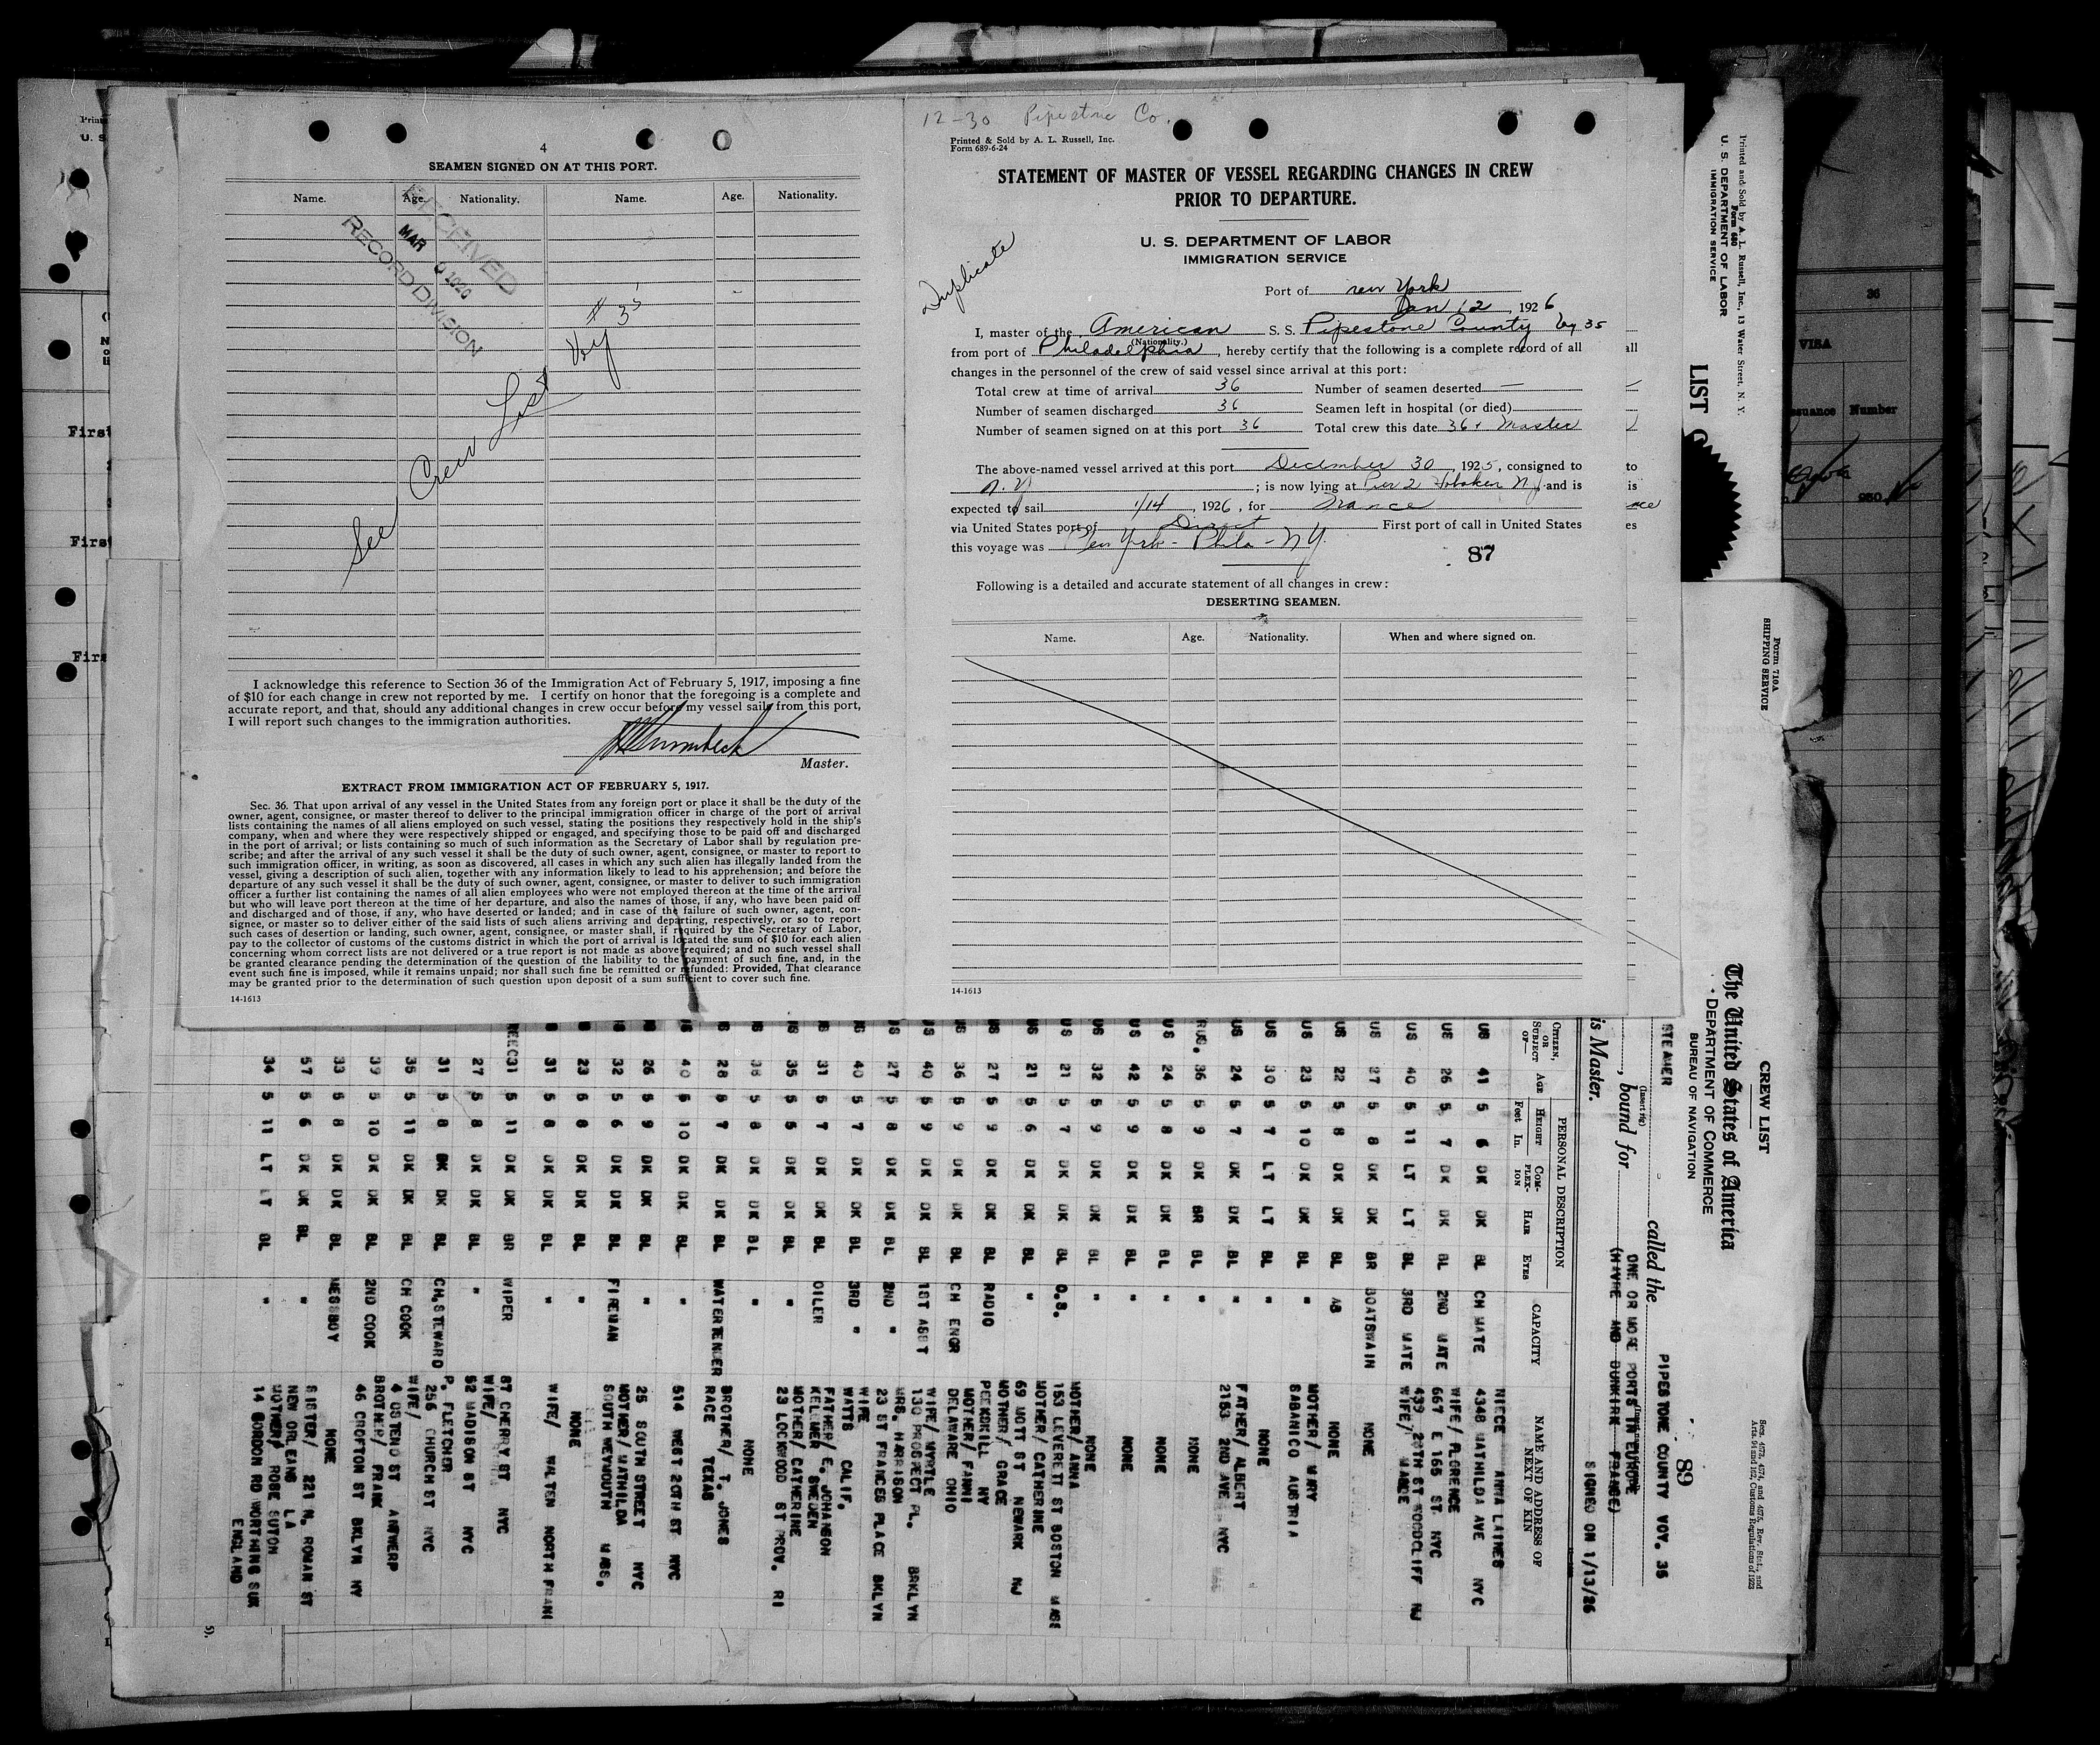 4
SEAMEN SIGNED ON AT THIS PORT.
Name. Age. Nationality. Name. Age. Nationality.
RECEIVED
MAR
RECORD DIVISION
See Crew List Voy # 35
I acknowledge this reference to Section 36 of the Immigration Act of February 5, 1917, imposing a fine
of $10 for each change in crew not reported by me. I certify on honor that the foregoing is a complete and
accurate report, and that, should any additional changes in crew occur before my vessel sails from this port,
I will report such changes to the immigration authorities.
Master.
EXTRACT FROM IMMIGRATION ACT OF FEBRUARY 5, 1917.
Sec. 36. That upon arrival of any vessel in the United States from any foreign port or place it shall be the duty of the
owner, agent, consignee, or master thereof to deliver to the principal immigration officer in charge of the port of arrival
lists containing the names of all aliens employed on such vessel, stating the positions they respectively hold in the ship's
company, when and where they were respectively shipped or engaged, and specifying those to be paid off and discharged
in the port of arrival; or lists containing so much of such information as the Secretary of Labor shall by regulation pre-
scribe; and after the arrival of any such vessel it shall be the duty of such owner, agent, consignee, or master to report to
such immigration officer, in writing, as soon as discovered, all cases in which any such alien has illegally landed from the
vessel, giving a description of such alien, together with any information likely to lead to his apprehension; and before the
departure of any such vessel it shall be the duty of such owner, agent, consignee, or master to deliver to such immigration
officer a further list containing the names of all alien employees who were not employed thereon at the time of the arrival
but who will leave port thereon at the time of her departure, and also the names of those, if any, who have been paid off
and discharged and of those, if any, who have deserted or landed; and in case of the failure of such owner, agent, con-
signee, or master so to deliver either of the said lists of such aliens arriving and departing, respectively, or so to report
such cases of desertion or landing, such owner, agent, consignee, or master shall, if required by the Secretary of Labor,
pay to the collector of customs of the customs district in which the port of arrival is located the sum of $10 for each alien
concerning whom correct lists are not delivered or a true report is not made as above required; and no such vessel shall
be granted clearance pending the determination of the question of the liability to the payment of such fine, and, in the
event such fine is imposed, while it remains unpaid; nor shall such fine be remitted or refunded: Provided, That clearance
may be granted prior to the determination of such question upon deposit of a sum sufficient to cover such fine.
14-1613
12-30 Pipestone Co.
Printed & Sold by A. L. Russell, Inc.
Form 689-6-24
STATEMENT OF MASTER OF VESSEL REGARDING CHANGES IN CREW
PRIOR TO DEPARTURE.
U. S. DEPARTMENT OF LABOR
IMMIGRATION SERVICE
Duplicate
Port of New York
Jan 12, 1926
I, master of the American S. S. Pipestone County Voy 35
(Nationality.)
from port of Philadelphia, hereby certify that the following is a complete record of all
changes in the personnel of the crew of said vessel since arrival at this port:
Total crew at time of arrival 36 Number of seamen deserted —
Number of seamen discharged 36 Seamen left in hospital (or died)
Number of seamen signed on at this port 36 Total crew this date 36 + Master
The above-named vessel arrived at this port December 30, 1925, consigned to
N. Y ; is now lying at Pier 2 Hoboken N J and is
expected to sail 1/14, 1926, for France
via United States port of Direct First port of call in United States
this voyage was New York - Phila - N Y.
87
Following is a detailed and accurate statement of all changes in crew:
DESERTING SEAMEN.
Name. Age. Nationality. When and where signed on.
14-1613
Printed and Sold by A. L. Russell, Inc., 13 Water Street, N. Y.
Form 680
U. S. DEPARTMENT OF LABOR
IMMIGRATION SERVICE
LIST
36
VISA
Number
Form 710A
SHIPPING SERVICE
CREW LIST
The United States of America
DEPARTMENT OF COMMERCE
BUREAU OF NAVIGATION
Secs. 4573, 4574, and 4575, Rev. Stat., and
Arts. 94 and 172, Customs Regulations of 1923
89
STEAMER called the PIPESTONE COUNTY VOY. 35
(Insert rig)
ONE OR MORE PORTS IN EUROPE
, bound for (HAVRE AND DUNKIRK FRANCE)
is Master. SIGNED ON 1/13/26
PERSONAL DESCRIPTION
CITIZEN, OR SUBJECT OF— AGE HEIGHT Feet In. COMPLEXION HAIR EYES CAPACITY NAME AND ADDRESS OF NEXT OF KIN
US 41 5 6 DK DK BL CH MATE NIECE ANNA LAINES
4348 MATHILDA AVE NYC
US 26 5 7 DK DK BL 2ND MATE WIFE/ FLORENCE
667 E 165 ST. NYC
US 40 5 11 LT LT BL 3RD MATE 439 29TH ST WOODCLIFF NJ
WIFE/ MADGE
US 27 5 8 DK DK BR BOATSWAIN NONE
US 22 5 8 DK DK BL AB NONE
US 23 5 10 DK DK BL " MOTHER/ MARY
SABANICO AUSTRIA
US 30 5 7 LT LT BL " NONE
US 24 5 7 DK DK BL " FATHER/ ALBERT
2153 2ND AVE NYC
RUS. 36 5 9 DK BR BL " NONE
US 24 5 8 DK DK BL " NONE
US 42 5 9 DK DK BL " NONE
US 32 5 9 DK DK BL " NONE
US 21 5 7 DK DK BL O.S. MOTHER/ ANNA
153 LEVERETT ST BOSTON MASS
US 21 5 6 DK DK BL " MOTHER/ CATHERINE
69 MOTT ST NEWARK NJ
US 27 5 9 DK DK BL RADIO MOTHER/ GRACE
PEEKSKILL NY
US 36 5 9 DK DK BL CH ENGR MOTHER/ FANNI
DELAWARE OHIO
US 40 5 9 DK DK BL 1ST ASST WIFE/ MYRTLE
130 PROSPECT PL. BRKLYN
US 27 5 8 DK DK BL 2ND " MRS. HARRISON
23 ST FRANCES PLACE BKLYN
US 40 5 7 DK DK BL 3RD " WIFE
WATTS CALIF.
US 31 5 7 DK DK BL OILER FATHER/ E. JOHANSON
KELLMER SWEDEN
US 35 5 5 DK DK BL " MOTHER/ CATHERINE
23 LOCKWOOD ST PROV. RI
US 36 5 8 DK DK BL " NONE
US 28 5 7 DK DK BL WATERTENDER BROTHER/ T. JONES
RACE TEXAS
US 40 5 10 DK DK BL " 514 WEST 20TH ST NYC
US 26 5 9 DK DK BL " 25 SOUTH STREET NYC
US 32 5 6 DK DK BL FIREMAN MOTHER/ MATHILDA
SOUTH WEYMOUTH MASS.
23 5 8 DK DK BL " NONE
31 5 8 DK DK BL " WIFE/ WALTEN NORTH
GREEC 31 5 11 DK DK BR WIPER 57 CHERRY ST NYC
27 5 8 DK DK BL " WIFE/
52 MADISON ST NYC
31 5 8 DK DK BL CH. STEWARD P. FLETCHER
256 CHURCH ST NYC
35 5 11 DK DK BL CH COOK WIFE/
4 OSTEND ST ANTWERP
39 5 10 DK DK BL 2ND COOK BROTHER/ FRANK
46 CROFTON ST BKLYN NY
33 5 8 DK DK BL MESSBOY NONE
57 5 6 DK DK BL " SISTER/ 221 N. ROMAN ST
NEW ORLEANS LA
34 5 11 LT LT BL " MOTHER/ ROSE SUTON
14 GORDON RD WORTHING SUX
ENGLAND